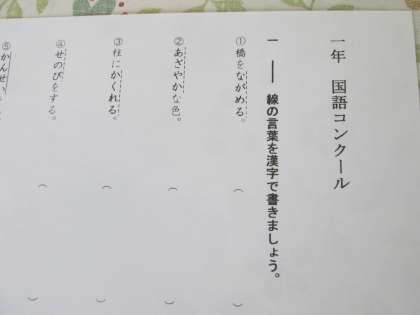 一年　国語コンクール
一　――　線の言葉を漢字で書きましょう。
①橋をながめる。（　）
②あざやかな色。（　）
③柱にかくれる。（　）
④せのびをする。（　）
⑤かんせい